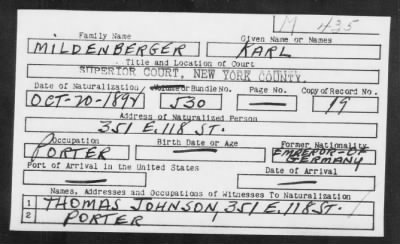 M 435
Family Name Given Name or Names
MILDENBERGER KARL
Title and Location of Court
SUPERIOR COURT, NEW YORK COUNTY.
Date of Naturalization Volume or Bundle No. Page No. Copy of Record No.
OCT-20-1892 530 — 19
Address of Naturalized Person
351 E. 118 ST.
Occupation Birth Date or Age Former Nationality
PORTER — EMPEROR-OF GERMANY
Port of Arrival in the United States Date of Arrival
— —
Names, Addresses and Occupations of Witnesses To Naturalization
1 THOMAS JOHNSON, 351 E. 118 ST.
2 PORTER